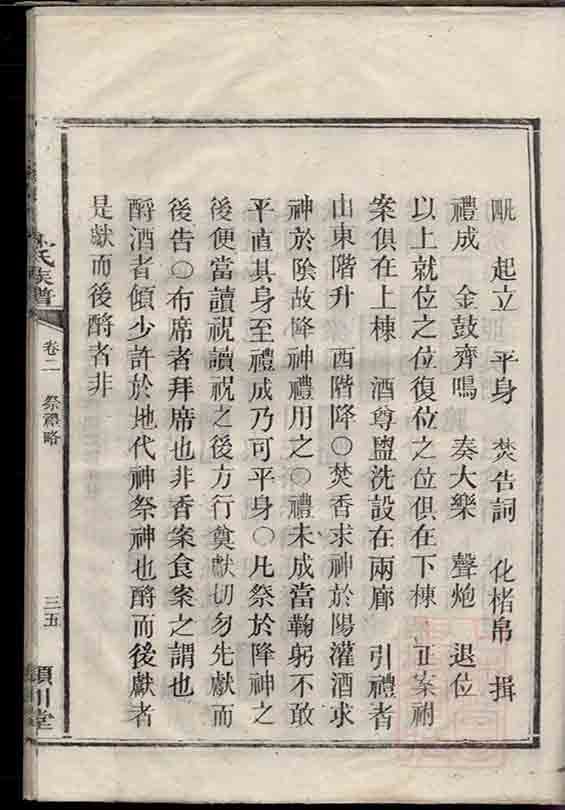 毗 起立 平身 焚告詞 化楮帛 揖
禮成 金鼓齊鳴 奏大樂 聲炮 退位
以上就位之位復位之位俱在下棟 正案祔
案俱在上棟 酒尊盥洗設在兩廊 引禮者
由東階升 西階降○焚香求神於陽灌酒求
神於陰故降神禮用之○禮未成當鞠躬不敢
平直其身至禮成乃可平身○凡祭於降神之
後便當讀祝讀祝之後方行奠獻切勿先獻而
後告○布席者拜席也非香案食案之謂也
酹酒者傾少許於地代神祭神也酹而後獻者
是獻而後酹者非
氏族譜 卷二 祭禮略 三五 潁川堂